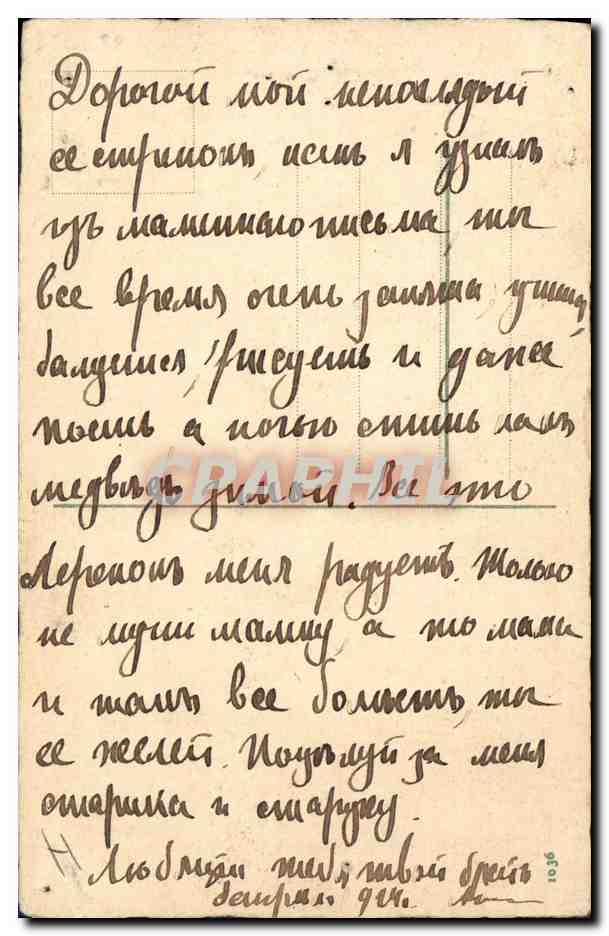 Дорогой мой ненаглядый
сестренокъ, какъ я узналъ
изъ мамочкаго письма ты
все время очень занята,
балуешся, рисуешь и даже
поешь а ночью спишь какъ
медвѣдь зимой. Все это
меня радуетъ. Только
не мучи мамку а то мама
и такъ все болѣетъ, ты
ее желей. Поцѣлуй за меня
старика и старуху.
I Любящий тебя твой братъ
924.
1036
CRAPHIL